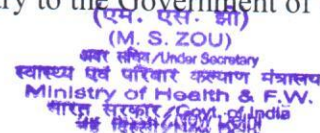 ry to the Government of
(एम. एस. झौ)
(M. S. ZOU)
अवर सचिव/Under Secretary
स्वास्थ्य एवं परिवार कल्याण मंत्रालय
Ministry of Health & F.W.
भारत सरकार/Govt. of India
नई दिल्ली/New Delhi